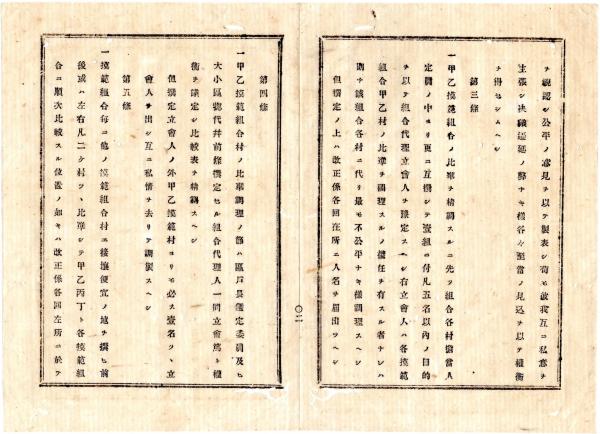 ヲ視認シ公平ノ意見ヲ以テ製表シ苟モ彼我互ニ私意ヲ
主張シ決議遅延ノ弊ナキ様各々至當ノ見込ヲ以テ權衡
ヲ得セシムヘシ
第三條
一甲乙摸範組合ノ比準ヲ精調スルニ先ツ組合各村當人
定員ノ中ヨリ更ニ互撰シテ壹組ニ付凡五名以內ノ目的
ヲ以テ組合代理立會人ヲ撰定スヘシ右立會人ハ各摸範
組合甲乙村ノ比準ヲ調理スルノ擔任ヲ有スル者ナレハ
則チ該組合各村ニ代リ最モ不公平ナキ樣調理スヘシ
但撰定ノ上ハ改正係各回在所ニ人名ヲ届出ツヘシ
〇二
第四條
一甲乙摸範組合村ノ比準調理ノ節ハ區戶長議定委員及ヒ
大小區總代并前條撰定セル組合代理人一同立會篤ト權
衡ヲ議定シ比較表ヲ精調スヘシ
但撰定立會人ノ外甲乙摸範村ヨリモ必ス壹名ツヽ立
會人ヲ出シ互ニ私情ヲ去リテ調製スヘシ
第五條
一摸範組合每ニ他ノ摸範組合村ニ接壤便宜ノ地ヲ撰ヒ前
後或ハ左右凡二ケ村ツヽ比準シテ甲乙丙丁ト各摸範組
合ニ順次比較スル位置ノ如キハ改正係各回在所ニ於テ